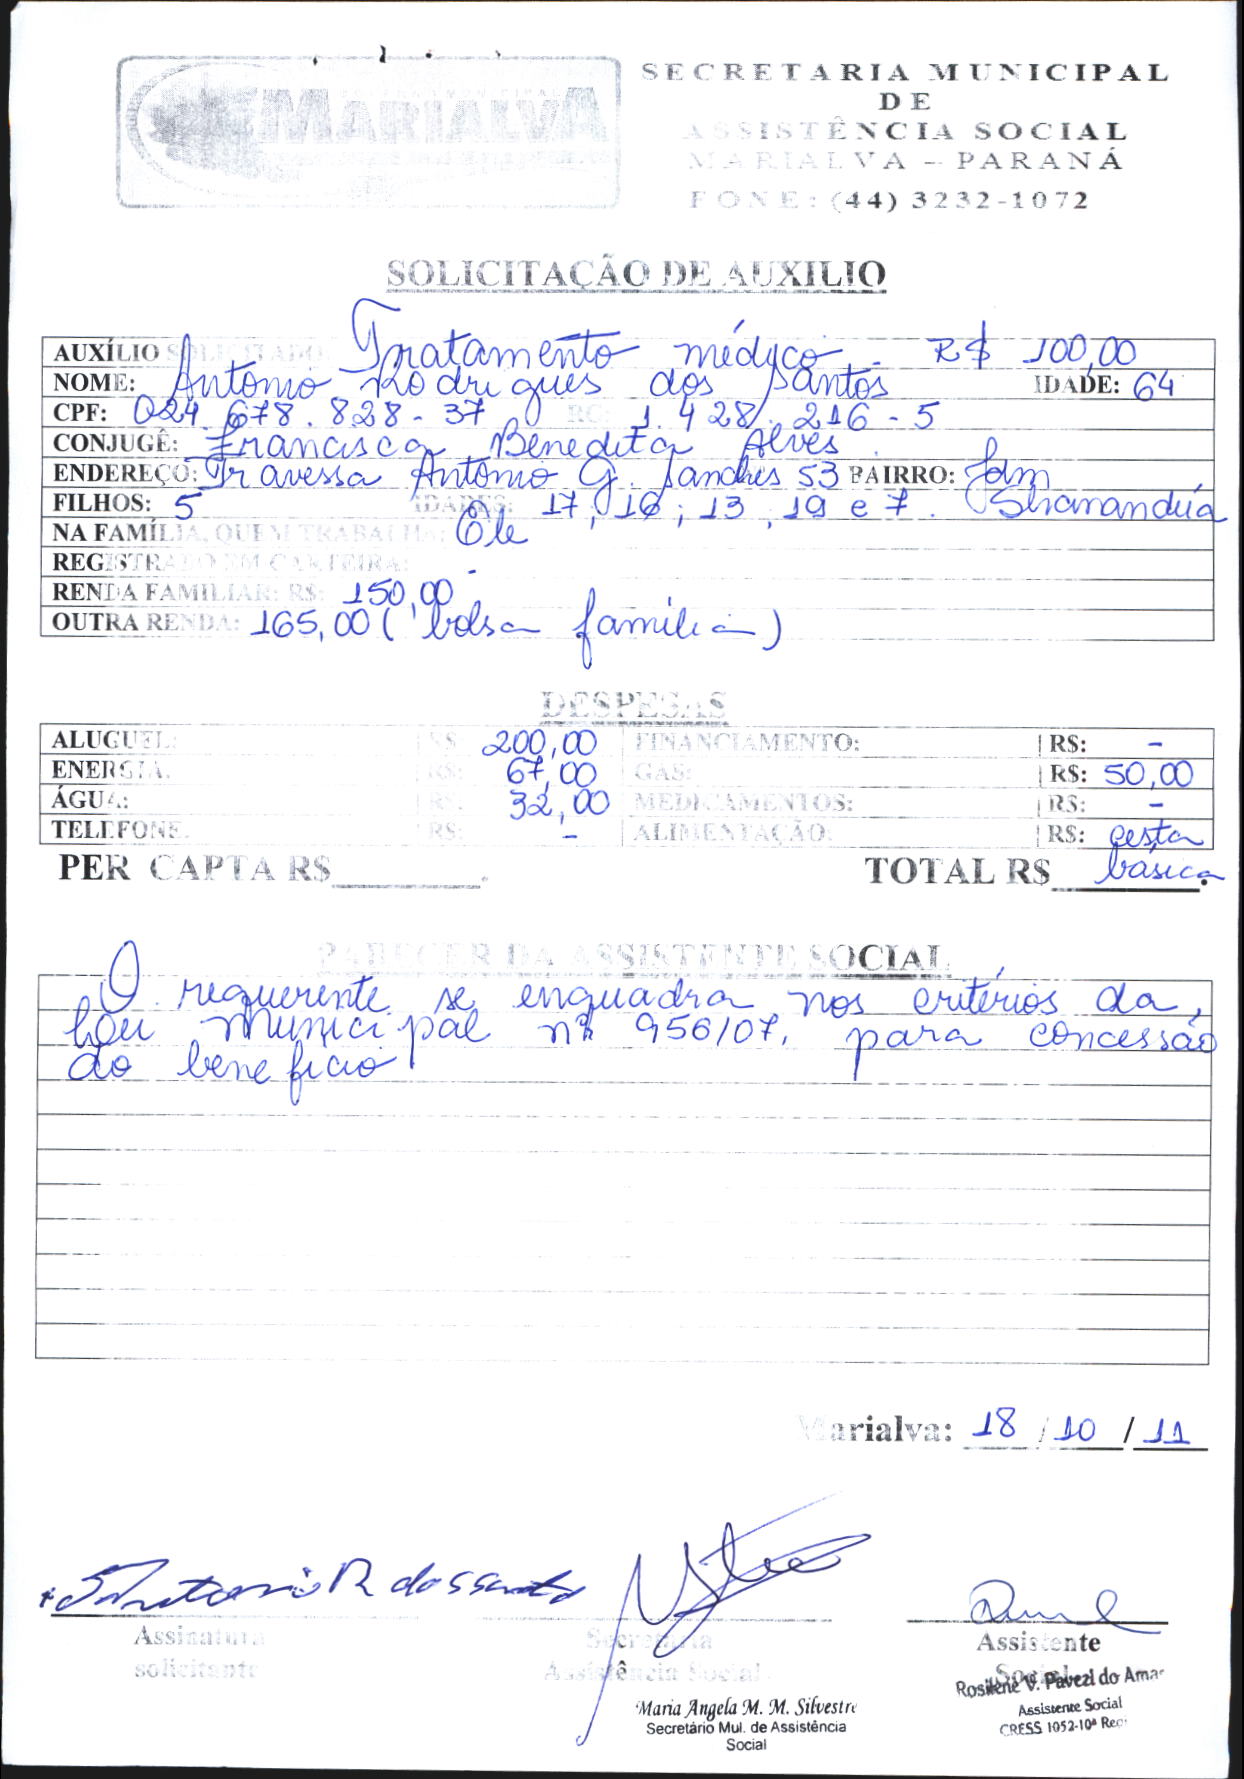 MARIALVA
SECRETARIA MUNICIPAL
DE
ASSISTÊNCIA SOCIAL
MARIALVA – PARANÁ
FONE: (44) 3232-1072
SOLICITAÇÃO DE AUXILIO
AUXÍLIO SOLICITADO: Tratamento médico. R$ 100,00
NOME: Antonio Rodrigues dos Santos IDADE: 64
CPF: 024.678.828-37 RG: 1.428.216-5
CONJUGÊ: Francisca Benedita Alves
ENDEREÇO: Travessa Antonio G. Sanches 53 BAIRRO: Jdm
FILHOS: 5 IDADES: 17, 16, 13, 19 e 7. Shanandúa
NA FAMÍLIA, QUEM TRABALHA: Ele
REGISTRADO EM CARTEIRA: -
RENDA FAMILIAR: R$: 150,00
OUTRA RENDA: 165,00 (bolsa família)
DESPESAS
ALUGUEL: R$: 200,00 FINANCIAMENTO: R$: -
ENERGIA: R$: 67,00 GÁS: R$: 50,00
ÁGUA: R$: 32,00 MEDICAMENTOS: R$: -
TELEFONE: R$: - ALIMENTAÇÃO: R$: cesta
PER CAPTA R$ TOTAL R$ básica
PARECER DA ASSISTENTE SOCIAL
O requerente se enquadra nos critérios da,
Lei Municipal nº 956/07, para concessão
do beneficio
Marialva: 18/10/11
Antonio R dos Santos
Assinatura
solicitante
Secretaria
Assistência Social
Maria Angela M. M. Silvestre
Secretário Mul. de Assistência
Social
Assistente
Social
Rosilene V. Pavezi do Amar
Assistente Social
CRESS 1052-10ª Reg.